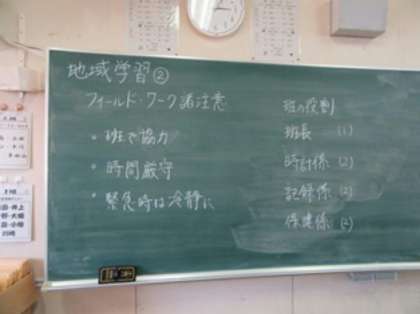 地域学習②
フィールド・ワーク諸注意
・班で協力
・時間厳守
・緊急時は冷静に
班の役割
班長 (1)
時計係 (2)
記録係 (2)
保健係 (2)